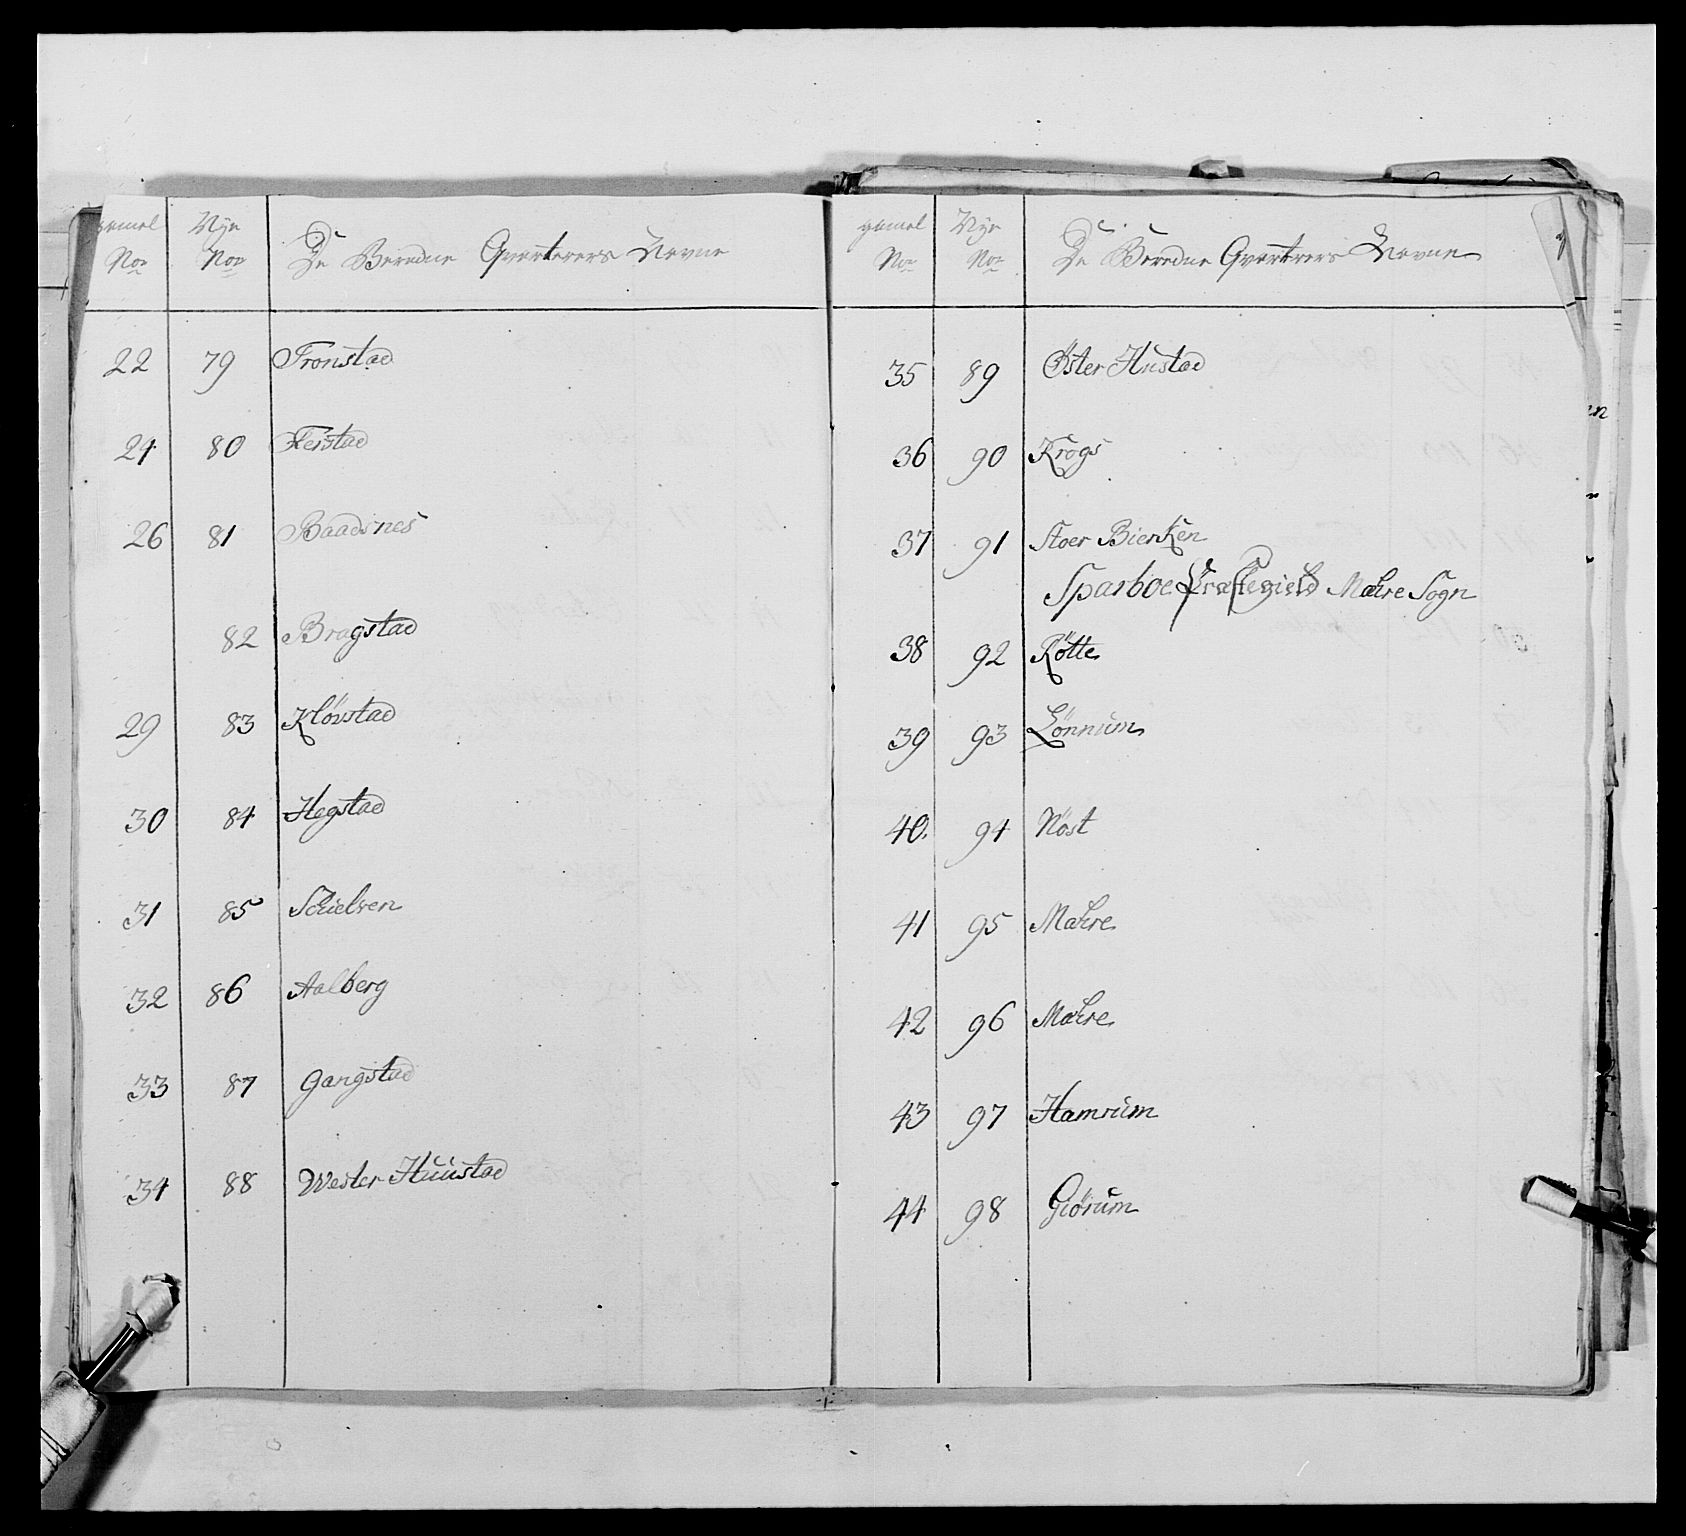 gamel Nye
No No De Beredne Qvarterers Navne
22 79 Tronstad
24 80 Feistad
26 81 Baadsnes
82 Bragstad
29 83 Kløvstad
30 84 Hegstad
31 85 Schielven
32 86 Aalberg
33 87 Gangstad
34 88 Wester Huustad
gamel Nye
No No De Beredne Qvarterers Navne
35 89 Öster Hustad
36 90 Krogs
37 91 Stoer Bierken
Sparboe Præstegield Mahre Sogn
38 92 Røtte
39 93 Lønnum
40. 94 Nøst
41 95 Mahre
42 96 Mahre
43 97 Hamrum
44 98 Giørum